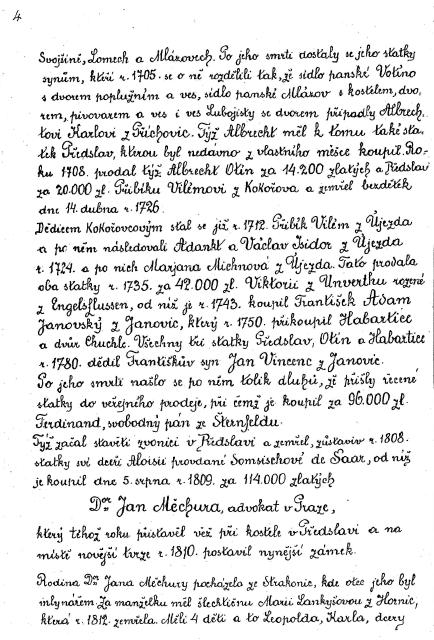 4
Svojšíně, Lomech a Mlázovech. Po jeho smrti dostaly se jeho statky
synům, kteří r. 1705. se o ně rozdělili tak, že sídlo panské Votíno
s dvorem poplužním a ves, sídlo panské Mlázov s kostelem, dvo-
rem, pivovarem a ves i ves Lubojisty se dvorem připadly Albrech-
tovi Karlovi z Příchovic. Týž Albrecht měl k tomu také sta-
tek Předslav, kterou byl nedávno z vlastního měšce koupil. Ro-
ku 1708. prodal týž Albrecht Otín za 14.200 zlatých a Předslav
za 20.000 zl. Přibíku Vilémovi z Kokořova a zemřel bezdětek
dne 14. dubna r. 1726.
Dědicem Kokořovcovým stal se již r. 1712. Přibík Vilém z Újezda
a po něm následovali Adankt a Václav Isidor z Újezda
r. 1724. a po nich Marjana Michnová z Újezda. Tato prodala
oba statky r. 1735. za 42.000 zl. Viktorii z Unverthu rozené
z Engelsflussen, od níž je r. 1743. koupil František Adam
Janovský z Janovic, který r. 1750. přikoupil Habartice
a dvůr Chuchle. Všechny tři statky Předslav, Otín a Habartice
r. 1780. dědil Františkův syn Jan Vincenc z Janovic.
Po jeho smrti našlo se po něm tolik dluhů, že přišly řečené
statky do veřejného prodeje, při čemž je koupil za 96.000 zl.
Ferdinand, svobodný pán ze Šternfeldu.
Týž začal stavěti zvonici v Předslavi a zemřel, zůstaviv r. 1808.
statky své dceři Aloisii provdané Somsischové de Saar, od níž
je koupil dne 5. srpna r. 1809. za 114.000 zlatých
Dr. Jan Měchura, advokat v Praze,
který téhož roku přistavěl věž při kostele v Předslavi a na
místě novější tvrze r. 1810. postavil nynější zámek.
Rodina Dra. Jana Měchury pocházela ze Strakonic, kde otec jeho byl
mlynářem. Za manželku měl šlechtičnu Marii Lankyšovou z Hornic,
která r. 1812. zemřela. Měli 4 děti a to Leopolda, Karla, dcery